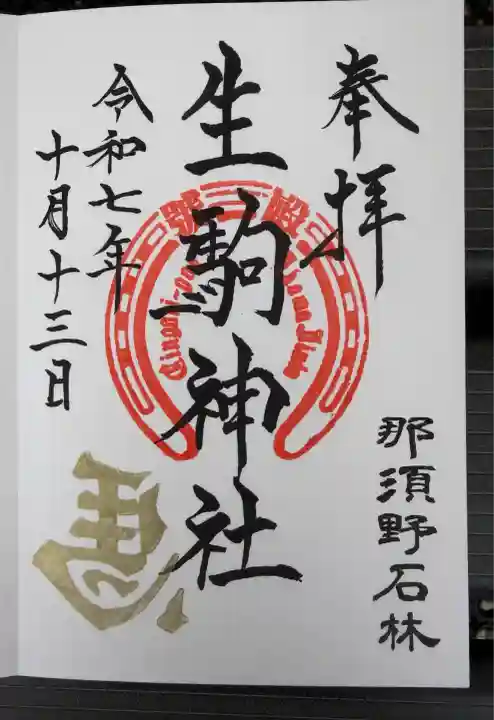 奉拝
生駒神社
令和七年
十月十三日
那須野石林